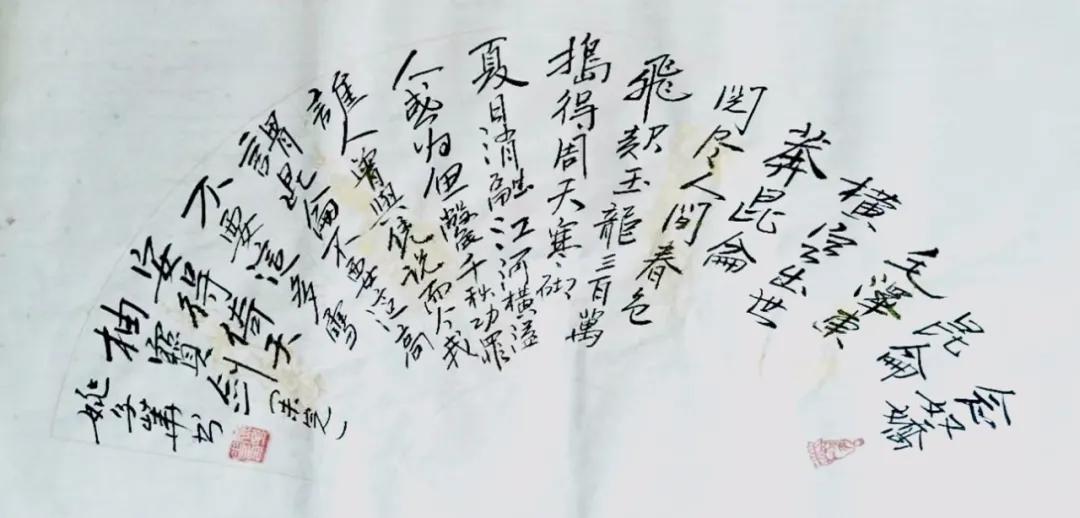 念奴嬌
昆侖
毛澤東
橫空出世
莽昆侖
閱尽人間春色
飛起玉龍三百萬
搗得周天寒彻
夏日消融江河橫溢
人或為鱉千秋功罪
誰人曾與評说而今我
謂昆侖不要這高
不要這多雪
安得倚天
抽寶剑(未完)
姚子華书